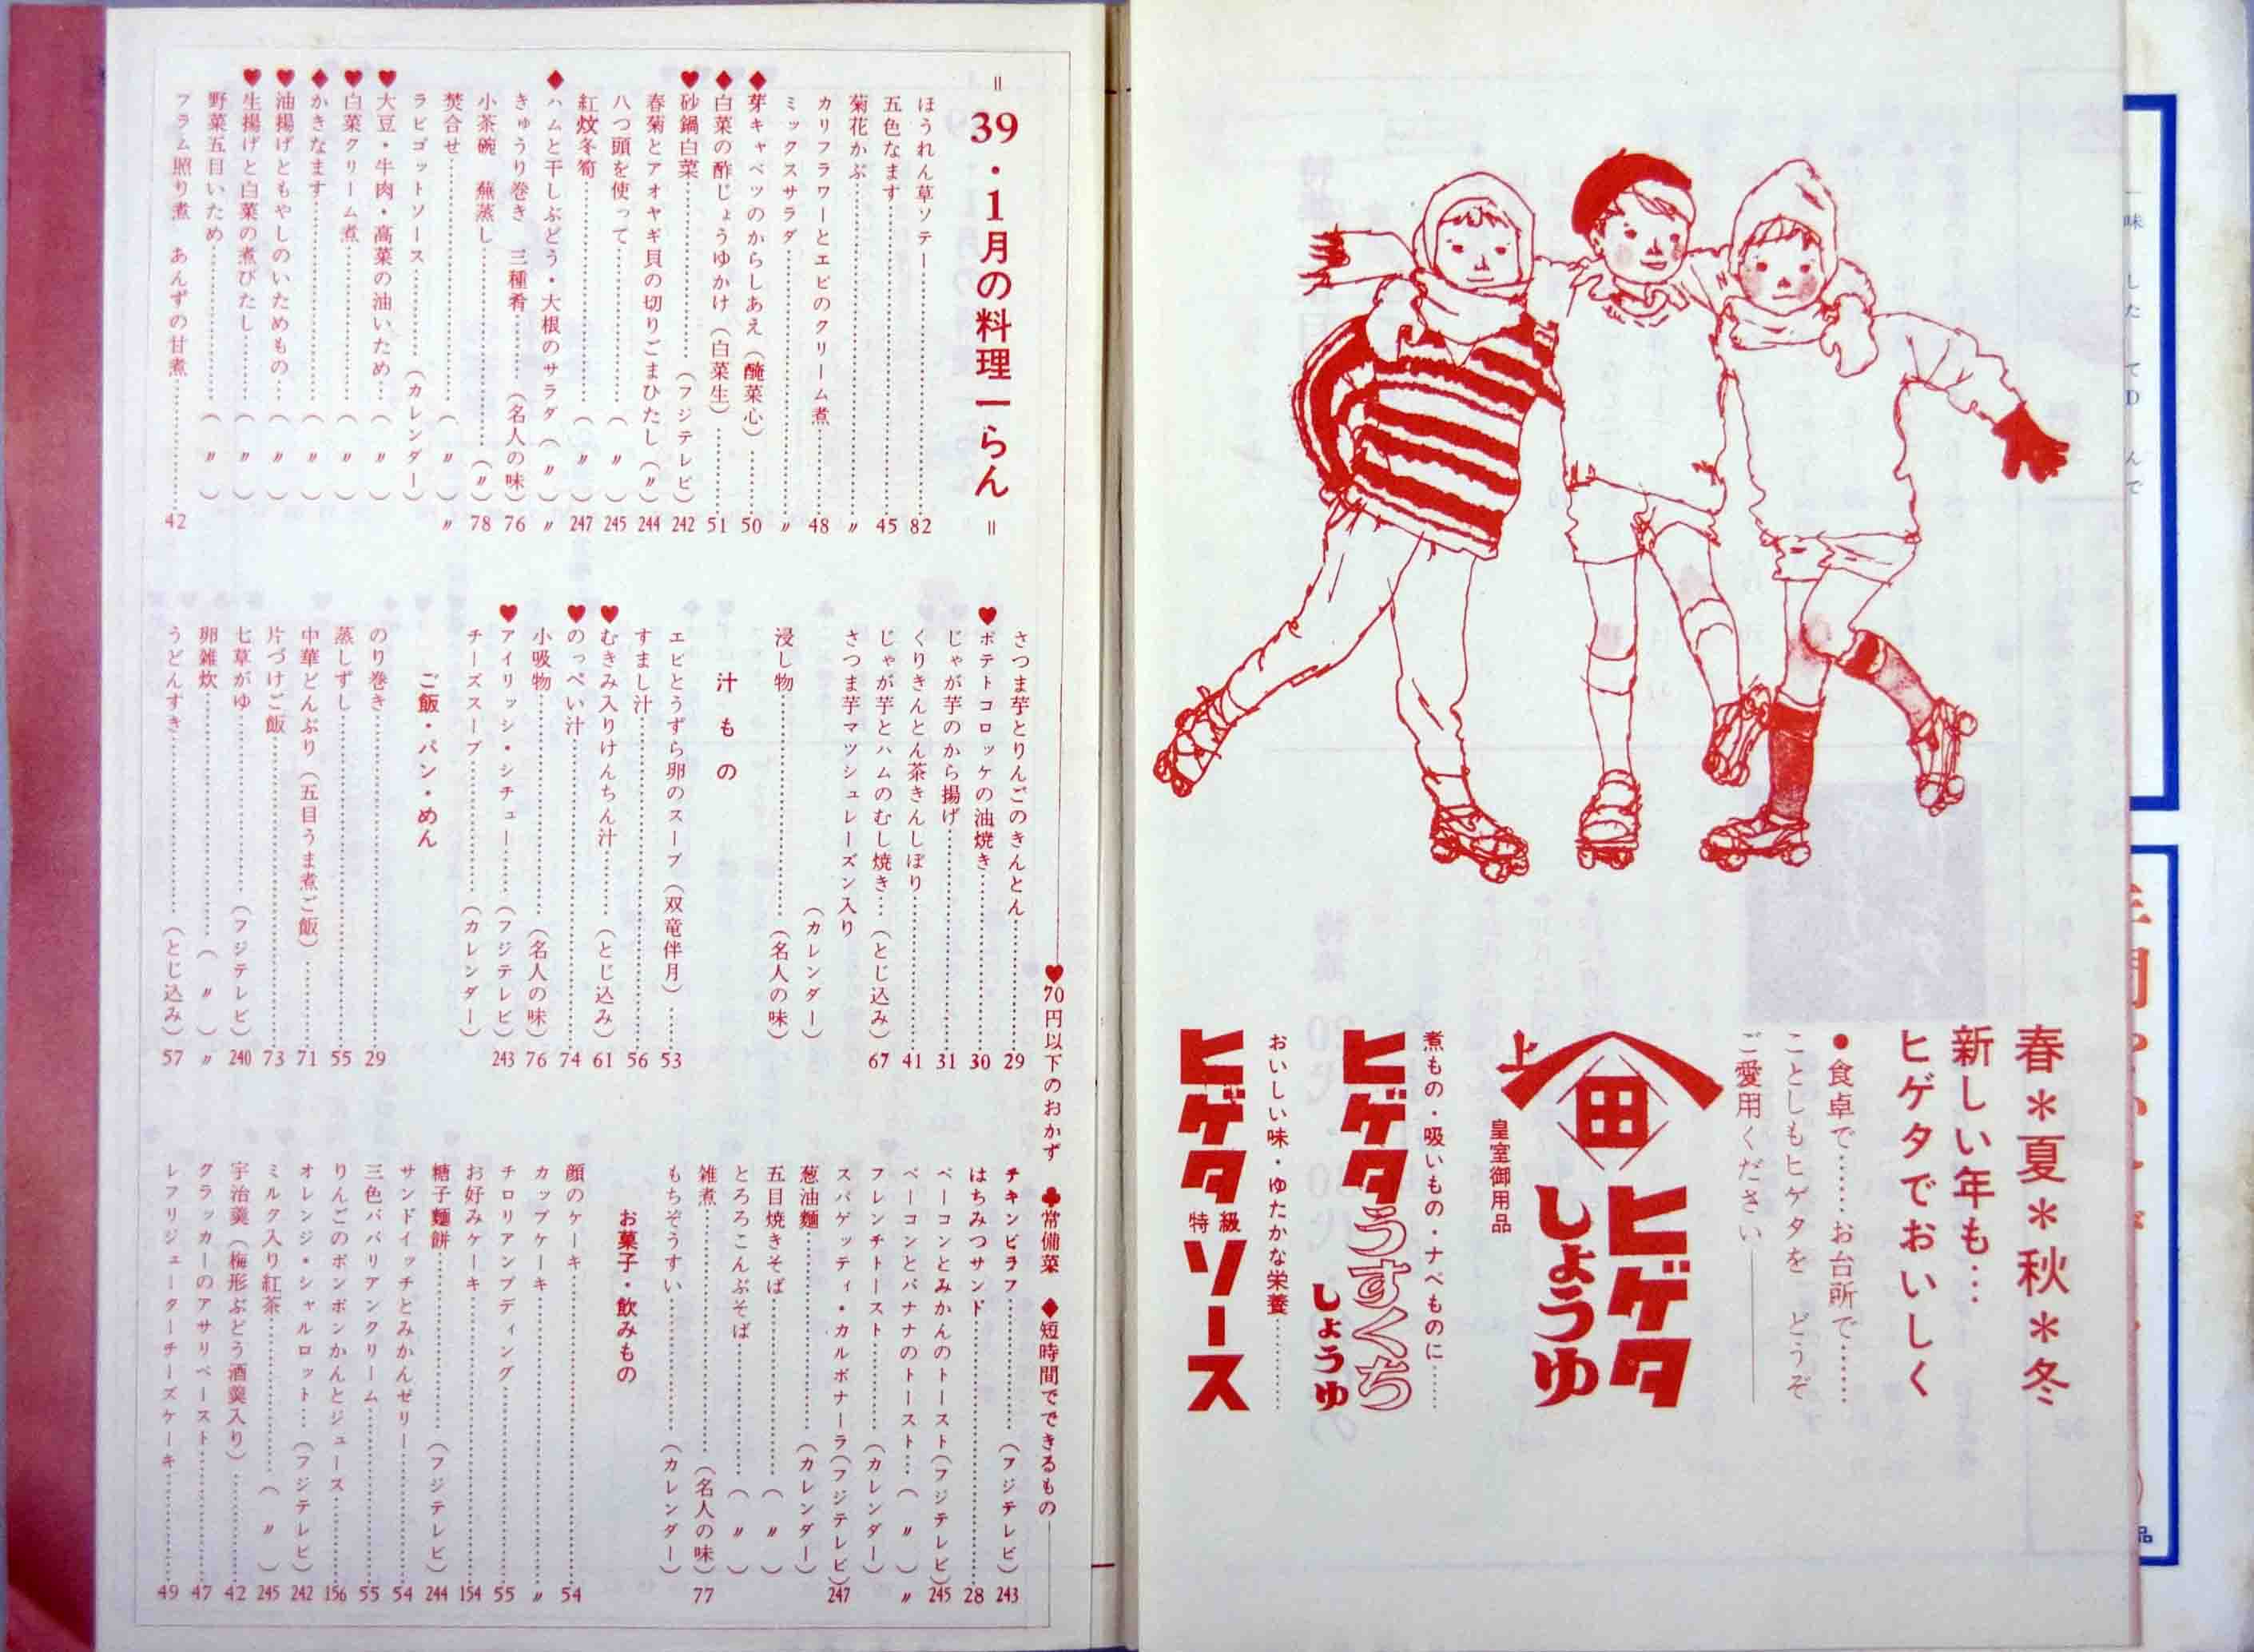 春＊夏＊秋＊冬
新しい年も…
ヒゲタでおいしく
●食卓で……お台所で……
ことしもヒゲタを　どうぞ
ご愛用ください――
上
田
ヒゲタ
しょうゆ
皇室御用品
煮もの・吸いもの・ナベものに……
ヒゲタうすくち
しょうゆ
おいしい味・ゆたかな栄養…………
ヒゲタ特級ソース
＝39・1月の料理一らん＝
♥70円以下のおかず　♣常備菜　◆短時間でできるもの
ほうれん草ソテー……82
五色なます……45
菊花かぶ……〃
カリフラワーとエビのクリーム煮……48
ミックスサラダ……〃
◆芽キャベツのからしあえ（醃菜心）……50
◆白菜の酢じょうゆかけ（白菜生）……51
♥砂鍋白菜……（フジテレビ）242
春菊とアオヤギ貝の切りごまひたし（〃）244
八つ頭を使って……（〃）245
紅炆冬筍……（〃）247
◆ハムと干しぶどう・大根のサラダ（〃）〃
きゅうり巻き　三種肴……（名人の味）76
小茶碗　蕪蒸し……（〃）78
焚合せ……（〃）〃
ラビゴットソース……（カレンダー）
♥大豆・牛肉・高菜の油いため……（〃）
♥白菜クリーム煮……（〃）
◆かきなます……（〃）
♥油揚げともやしのいためもの……（〃）
♥生揚げと白菜の煮びたし……（〃）
野菜五目いため……（〃）
プラム照り煮　あんずの甘煮……42
さつま芋とりんごのきんとん……29
♥ポテトコロッケの油焼き……30
じゃが芋のから揚げ……31
くりきんとん茶きんしぼり……41
じゃが芋とハムのむし焼き……（とじ込み）67
さつま芋マッシュレーズン入り
（カレンダー）
浸し物……（名人の味）
汁もの
エビとうずら卵のスープ（双竜伴月）……53
すまし汁……56
♥むきみ入りけんちん汁……（とじ込み）61
♥のっぺい汁……74
小吸物……（名人の味）76
♥アイリッシ・シチュー……（フジテレビ）243
チーズスープ……（カレンダー）
ご飯・パン・めん
のり巻き……29
蒸しずし……55
中華どんぶり（五目うま煮ご飯）……71
片づけご飯……73
七草がゆ……（フジテレビ）240
卵雑炊……（〃）〃
うどんすき……（とじ込み）57
チキンピラフ……（フジテレビ）243
はちみつサンド……28
ベーコンとみかんのトースト（フジテレビ）245
ベーコンとバナナのトースト……（〃）〃
フレンチトースト……（カレンダー）
スパゲッティ・カルボナーラ（フジテレビ）247
葱油麵……（カレンダー）
五目焼きそば……（〃）
とろろこんぶそば……（〃）
雑煮……（名人の味）77
もちぞうすい……（カレンダー）
お菓子・飲みもの
顔のケーキ……54
カップケーキ……〃
チロリアンプディング……55
お好みケーキ……154
糖子麵餅……（フジテレビ）244
サンドイッチとみかんゼリー……54
三色ババリアンクリーム……55
りんごのポンポンかんとジュース……156
オレンジ・シャルロット……（フジテレビ）242
ミルク入り紅茶……（〃）245
宇治羹（梅形ぶどう酒羹入り）……42
クラッカーのアサリペースト……47
レフリジェーターチーズケーキ……49